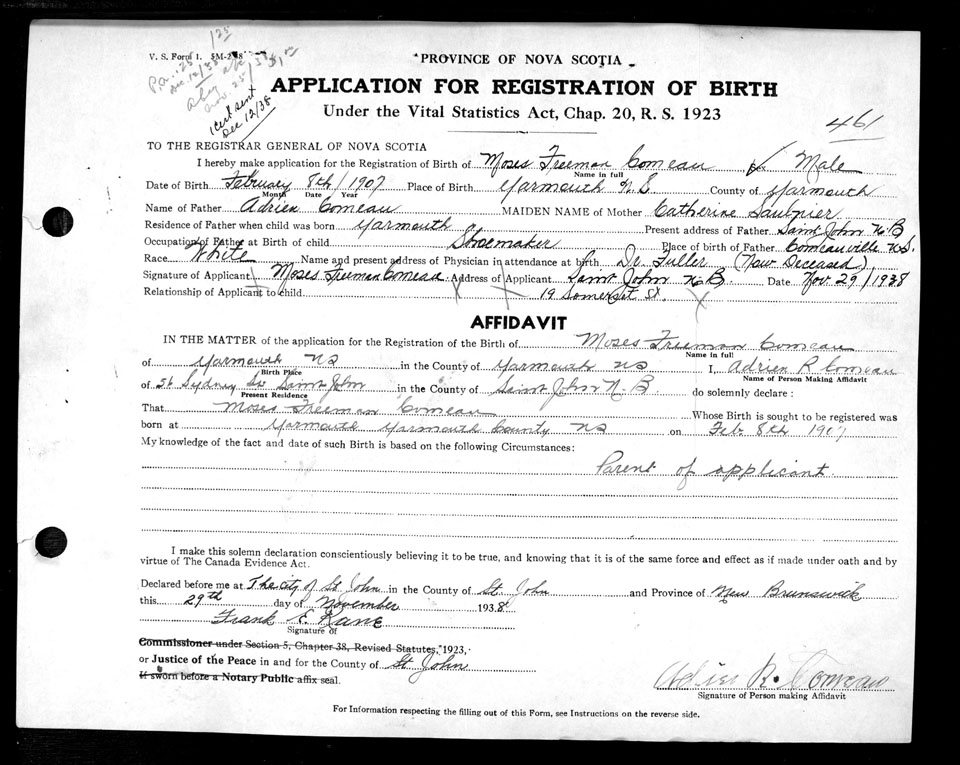 V. S. Form 1. 5M-2-8
PROVINCE OF NOVA SCOTIA
APPLICATION FOR REGISTRATION OF BIRTH
Under the Vital Statistics Act, Chap. 20, R. S. 1923
1 cert sent
Dec 12/38
461
TO THE REGISTRAR GENERAL OF NOVA SCOTIA
I hereby make application for the Registration of Birth of Moses Freeman Comeau Male
Name in full
Date of Birth February 8th / 1907 Place of Birth Yarmouth N. S County of Yarmouth
Month Date Year
Name of Father Adrien Comeau MAIDEN NAME of Mother Catherine Saulnier
Residence of Father when child was born Yarmouth Present address of Father Saint John N.B
Occupation of Father at Birth of child Shoemaker Place of birth of Father Comeauville N.S.
Race White Name and present address of Physician in attendance at birth Dr. Fuller (Now Deceased)
Signature of Applicant Moses Freeman Comeau Address of Applicant Saint John N.B. Date Nov. 29/1938
Relationship of Applicant to child 19 Somerset St.
AFFIDAVIT
IN THE MATTER of the application for the Registration of the Birth of Moses Freeman Comeau
Name in full
of Yarmouth NS in the County of Yarmouth NS I, Adrien R Comeau
Birth Place Name of Person Making Affidavit
of 56 Sydney St Saint John in the County of Saint John N. B do solemnly declare :
Present Residence
That Moses Freeman Comeau Whose Birth is sought to be registered was
born at Yarmouth Yarmouth County NS on Feb. 8th 1907
My knowledge of the fact and date of such Birth is based on the following Circumstances:
Parent of applicant.
I make this solemn declaration conscientiously believing it to be true, and knowing that it is of the same force and effect as if made under oath and by
virtue of The Canada Evidence Act.
Declared before me at The city of St John in the County of St. John and Province of New Brunswick
this 29th day of November 1938
Frank E. Kane
Signature of
Commissioner under Section 5, Chapter 38, Revised Statutes, 1923,
or Justice of the Peace in and for the County of St John
If sworn before a Notary Public affix seal.
Adrien R. Comeau
Signature of Person making Affidavit
For Information respecting the filling out of this Form, see Instructions on the reverse side.